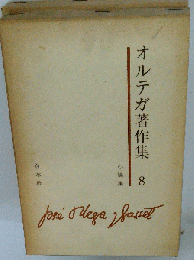 オルテガ著作集 8
José Ortega y Gasset